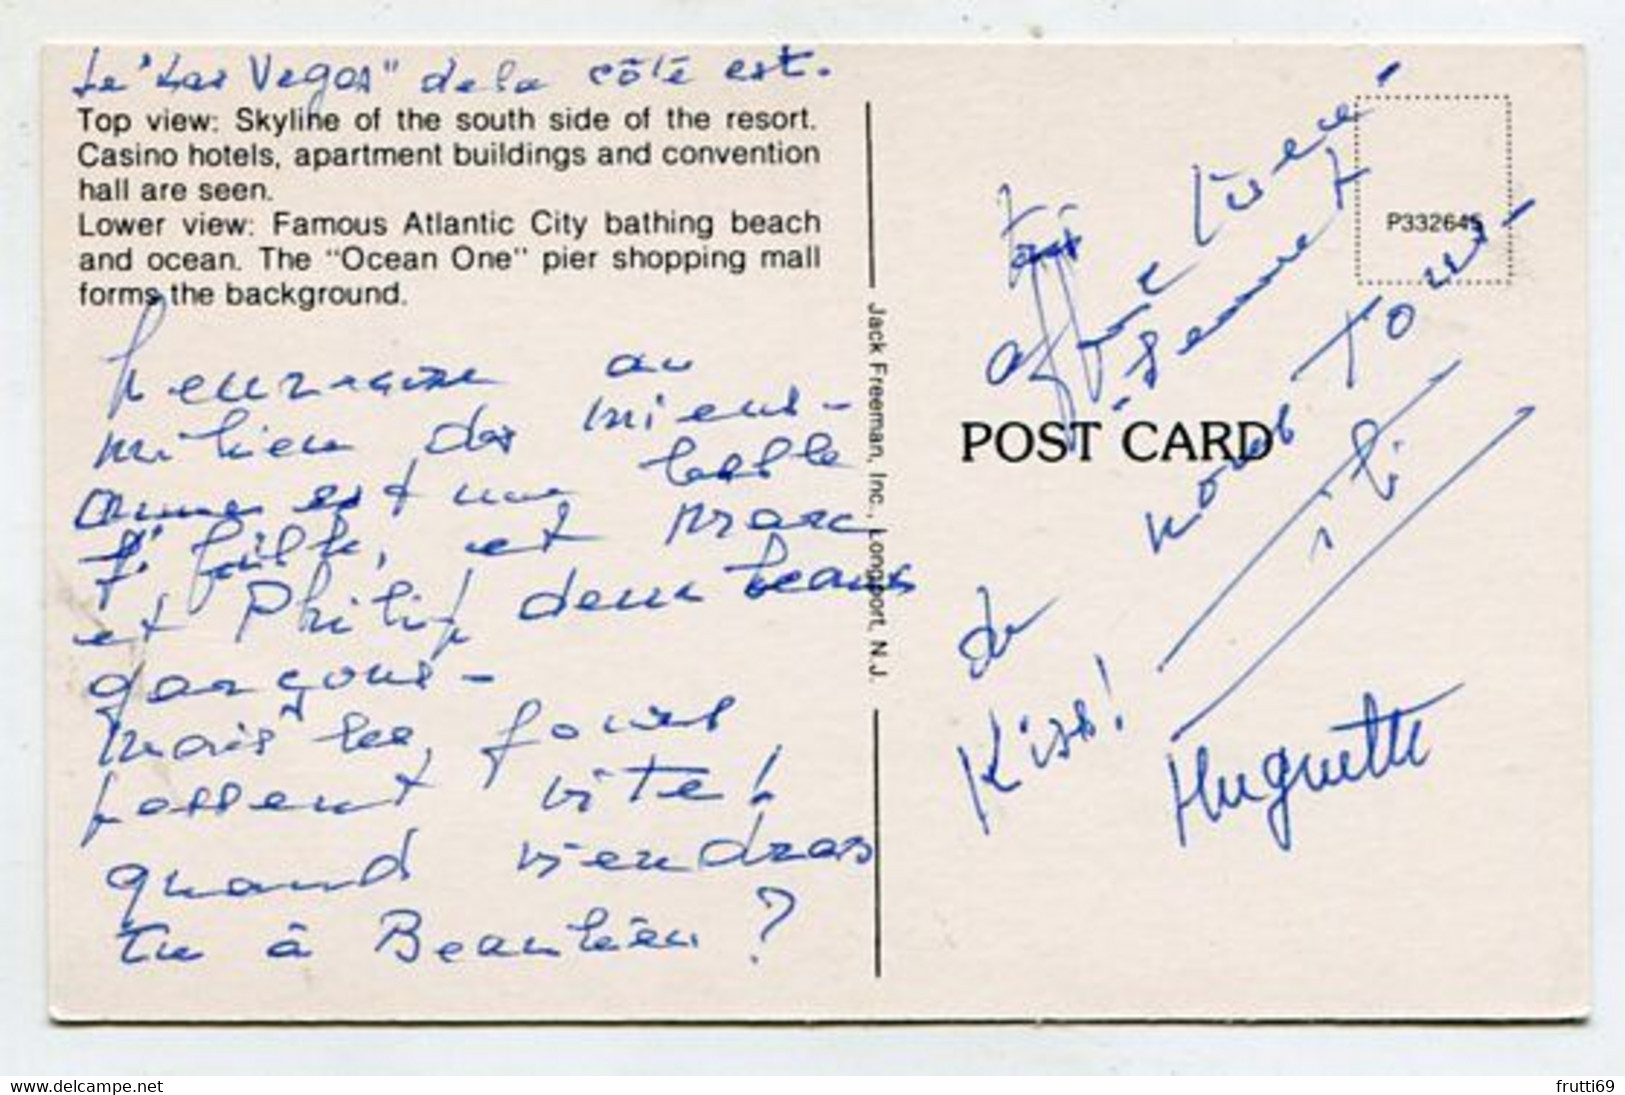 Le "Las Vegas" de la côté est.
Top view: Skyline of the south side of the resort.
Casino hotels, apartment buildings and convention
hall are seen.
Lower view: Famous Atlantic City bathing beach
and ocean. The "Ocean One" pier shopping mall
forms the background.
heureuse au
milieu des miens -
Anne est une belle
fille, et Marc
et Philip deux beaux
garçons -
mais les jours
passent vite !
quand viendras
tu à Beaulieu ?
Jack Freeman, Inc., Longport, N.J.
POST CARD
P332645
de nous tous -
ici
Kiss !
Huguette
delcampe.net
frutti69